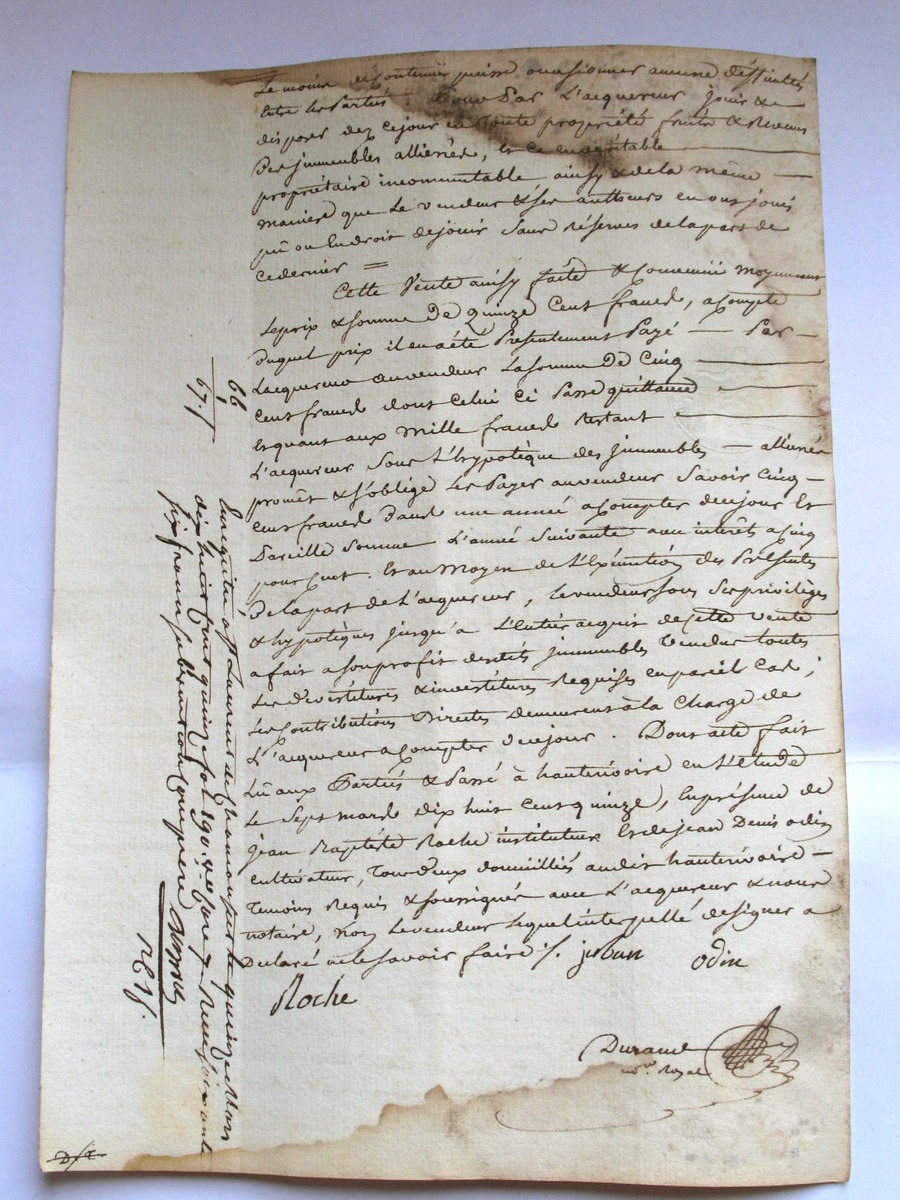 Le moins de contenü puisse ocasionner aucune difficultés
Entre les Parties. Pour Par L'acquereur jouir &
disposer dez cejour en toute propriété fruits & Revenus
Des jmmeubles alliénés, et ce en véritable
propriétaire incommutable ainsy & de la même
maniere que Le vendeur & ses autheurs en ont jouis
pû ou eu droit de jouir Sans Réserves de la part de
ce dernier =
Cette Vente ainsy faite & Convenüe moyennant
Le prix & somme De quinze Cent francs, a compte
duquel prix il en a été Présentement Payé — Par —
L'acquereur au vendeur La somme De Cinq
Cent francs dont Celui Ci Passe quittance
Et quant aux Mille francs Restant
L'acquereur Sous L'hypotèque des jmmeubles — alliénés
promêt & s'oblige Les Payer au vendeur Savoir Cinq —
cent francs Dans une année a Compter de ce jour Et
Pareille Somme L'année Suivante avec intérêt a Cinq
pour Cent. Et au Moyen de L'Exécution des Présentes
De la part de L'acquereur, le vendeur sous Ses privilèges
& hypotèques jusqu'a L'Entier acquit de cette Vente
a fait a son profit desdits jmmeubles Vendus toutes
Les devestitures & investitures Requises en pareil Cas;
Les Contributions Directes demeurent à la Charge de
L'acquereur a Compter de ce jour. Dont acte fait
Lû aux Parties & Passé à hauterivoire en L'étude
Le Sept mars dix huit Cent quinze, En présence de
jean Baptiste Roche instituteur Et de jean Denis odin
cultivateur, Tous deux domiciliés audit hauterivoire —
Temoins Requis & soussignés avec L'acquereur & nous
notaire, non Le vendeur Lequel interpellé de signer a
Déclaré ne le savoir faire /.
odin
Roche
Durand
no.re Royal
66
1
67.
Enregistré a St Laurent de Chamousset le quinze Mars
dix huit cent quinze fol. 190. Reçu soixante
six francs subvention comprise
R S S/.